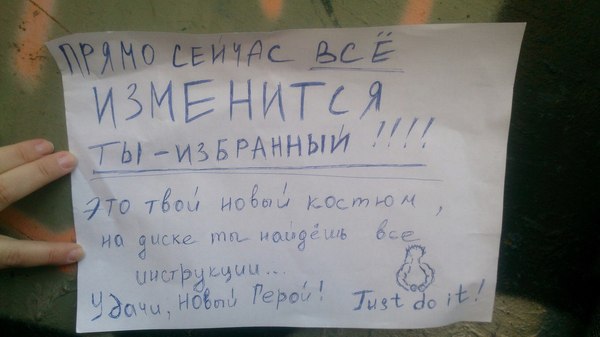 ПРЯМО СЕЙЧАС ВСЁ
ИЗМЕНИТСЯ
ТЫ - ИЗБРАННЫЙ !!!!
Это твой новый костюм,
на диске ты найдёшь все
инструкции...
Удачи, новый Герой! Just do it!